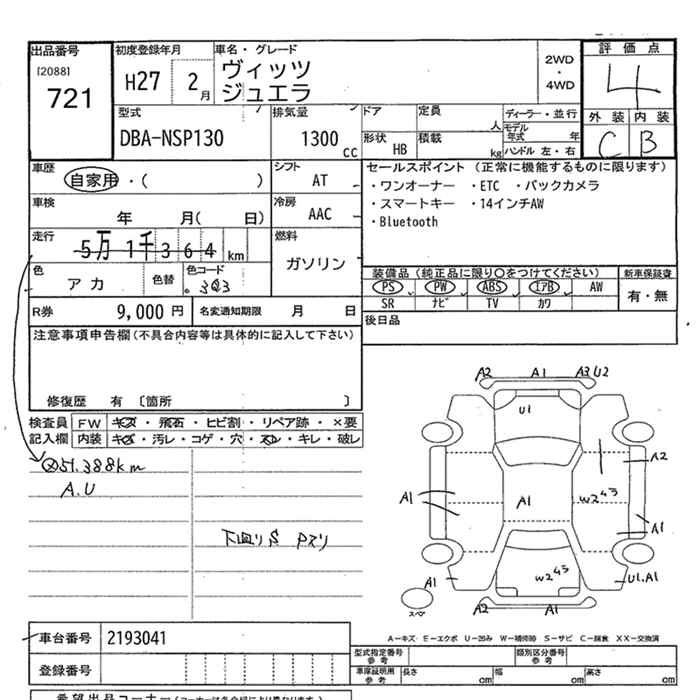 出品番号
[2088]
721
初度登録年月
H27 2月
車名・グレード
ヴィッツ
ジュエラ
2WD
・
4WD
評価点
4
外装 内装
C B
型式
DBA-NSP130
排気量
1300 CC
ドア
定員
人
形状 HB
積載
kg
ディーラー・並行
モデル
年式 年
ハンドル 左・右
車歴
自家用・( )
シフト
AT
車検
年 月( 日)
冷房
AAC
走行
5万1千364 km
燃料
ガソリン
色
アカ
色替
色コード
303
R券
9,000円
名変通知期限 月 日
セールスポイント (正常に機能するものに限ります)
・ワンオーナー ・ETC ・バックカメラ
・スマートキー ・14インチAW
・Bluetooth
装備品 (純正品に限り○をつけてください)
PS PW ABS エアB AW
SR ナビ TV カワ
新車保証書
有・無
後日品
注意事項申告欄(不具合内容等は具体的に記入して下さい)
修復歴 有 〔箇所 〕
検査員
記入欄
FW キズ・飛石・ヒビ割・リペア跡・×要
内装 キズ・汚レ・コゲ・穴・スレ・キレ・破レ
51.388km
A.U
下廻りS Pズリ
A2 A1 A3 U2
U1
A2
A1
A1
W2
A1
W2
A1
U1.A1
スペア
A2 A1
A−キズ E−エクボ U−凹み W−補修跡 S−サビ C−腐食 XX−交換済
車台番号
2193041
登録番号
型式指定番号
参考
類別区分番号
参考
車庫証明用
参考
長さ cm
幅 cm
高さ cm
希望出品コーナー